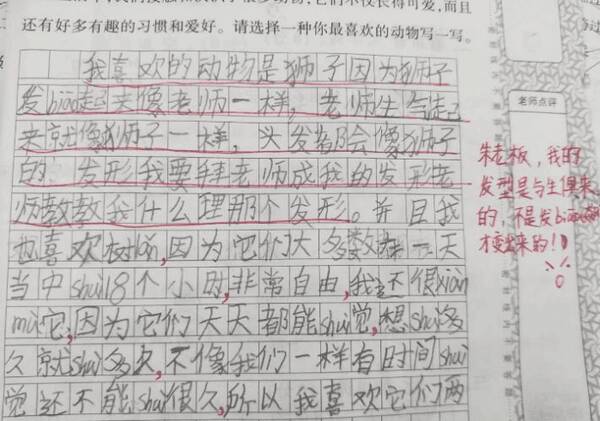 还有好多有趣的习惯和爱好。请选择一种你最喜欢的动物写一写。
我喜欢的动物是狮子因为狮子
发biao起来像老师一样，老师生气起
来就像狮子一样，头发都会像狮子
的 发形我要拜老师成我的发形老
师教教我什么理那个发形。并且我
也喜欢树lan，因为它们大多数在一天
当中shui18个小时，非常自由，我还很xian
mu它，因为它们天天都能shui觉，想shui多
久就shui多久，不像我们一样有时间shui
觉还不能shui很久，所以我喜欢它们两
老师点评
朱老板，我的
发型是与生俱来
的，不是发biao
才变出来的！